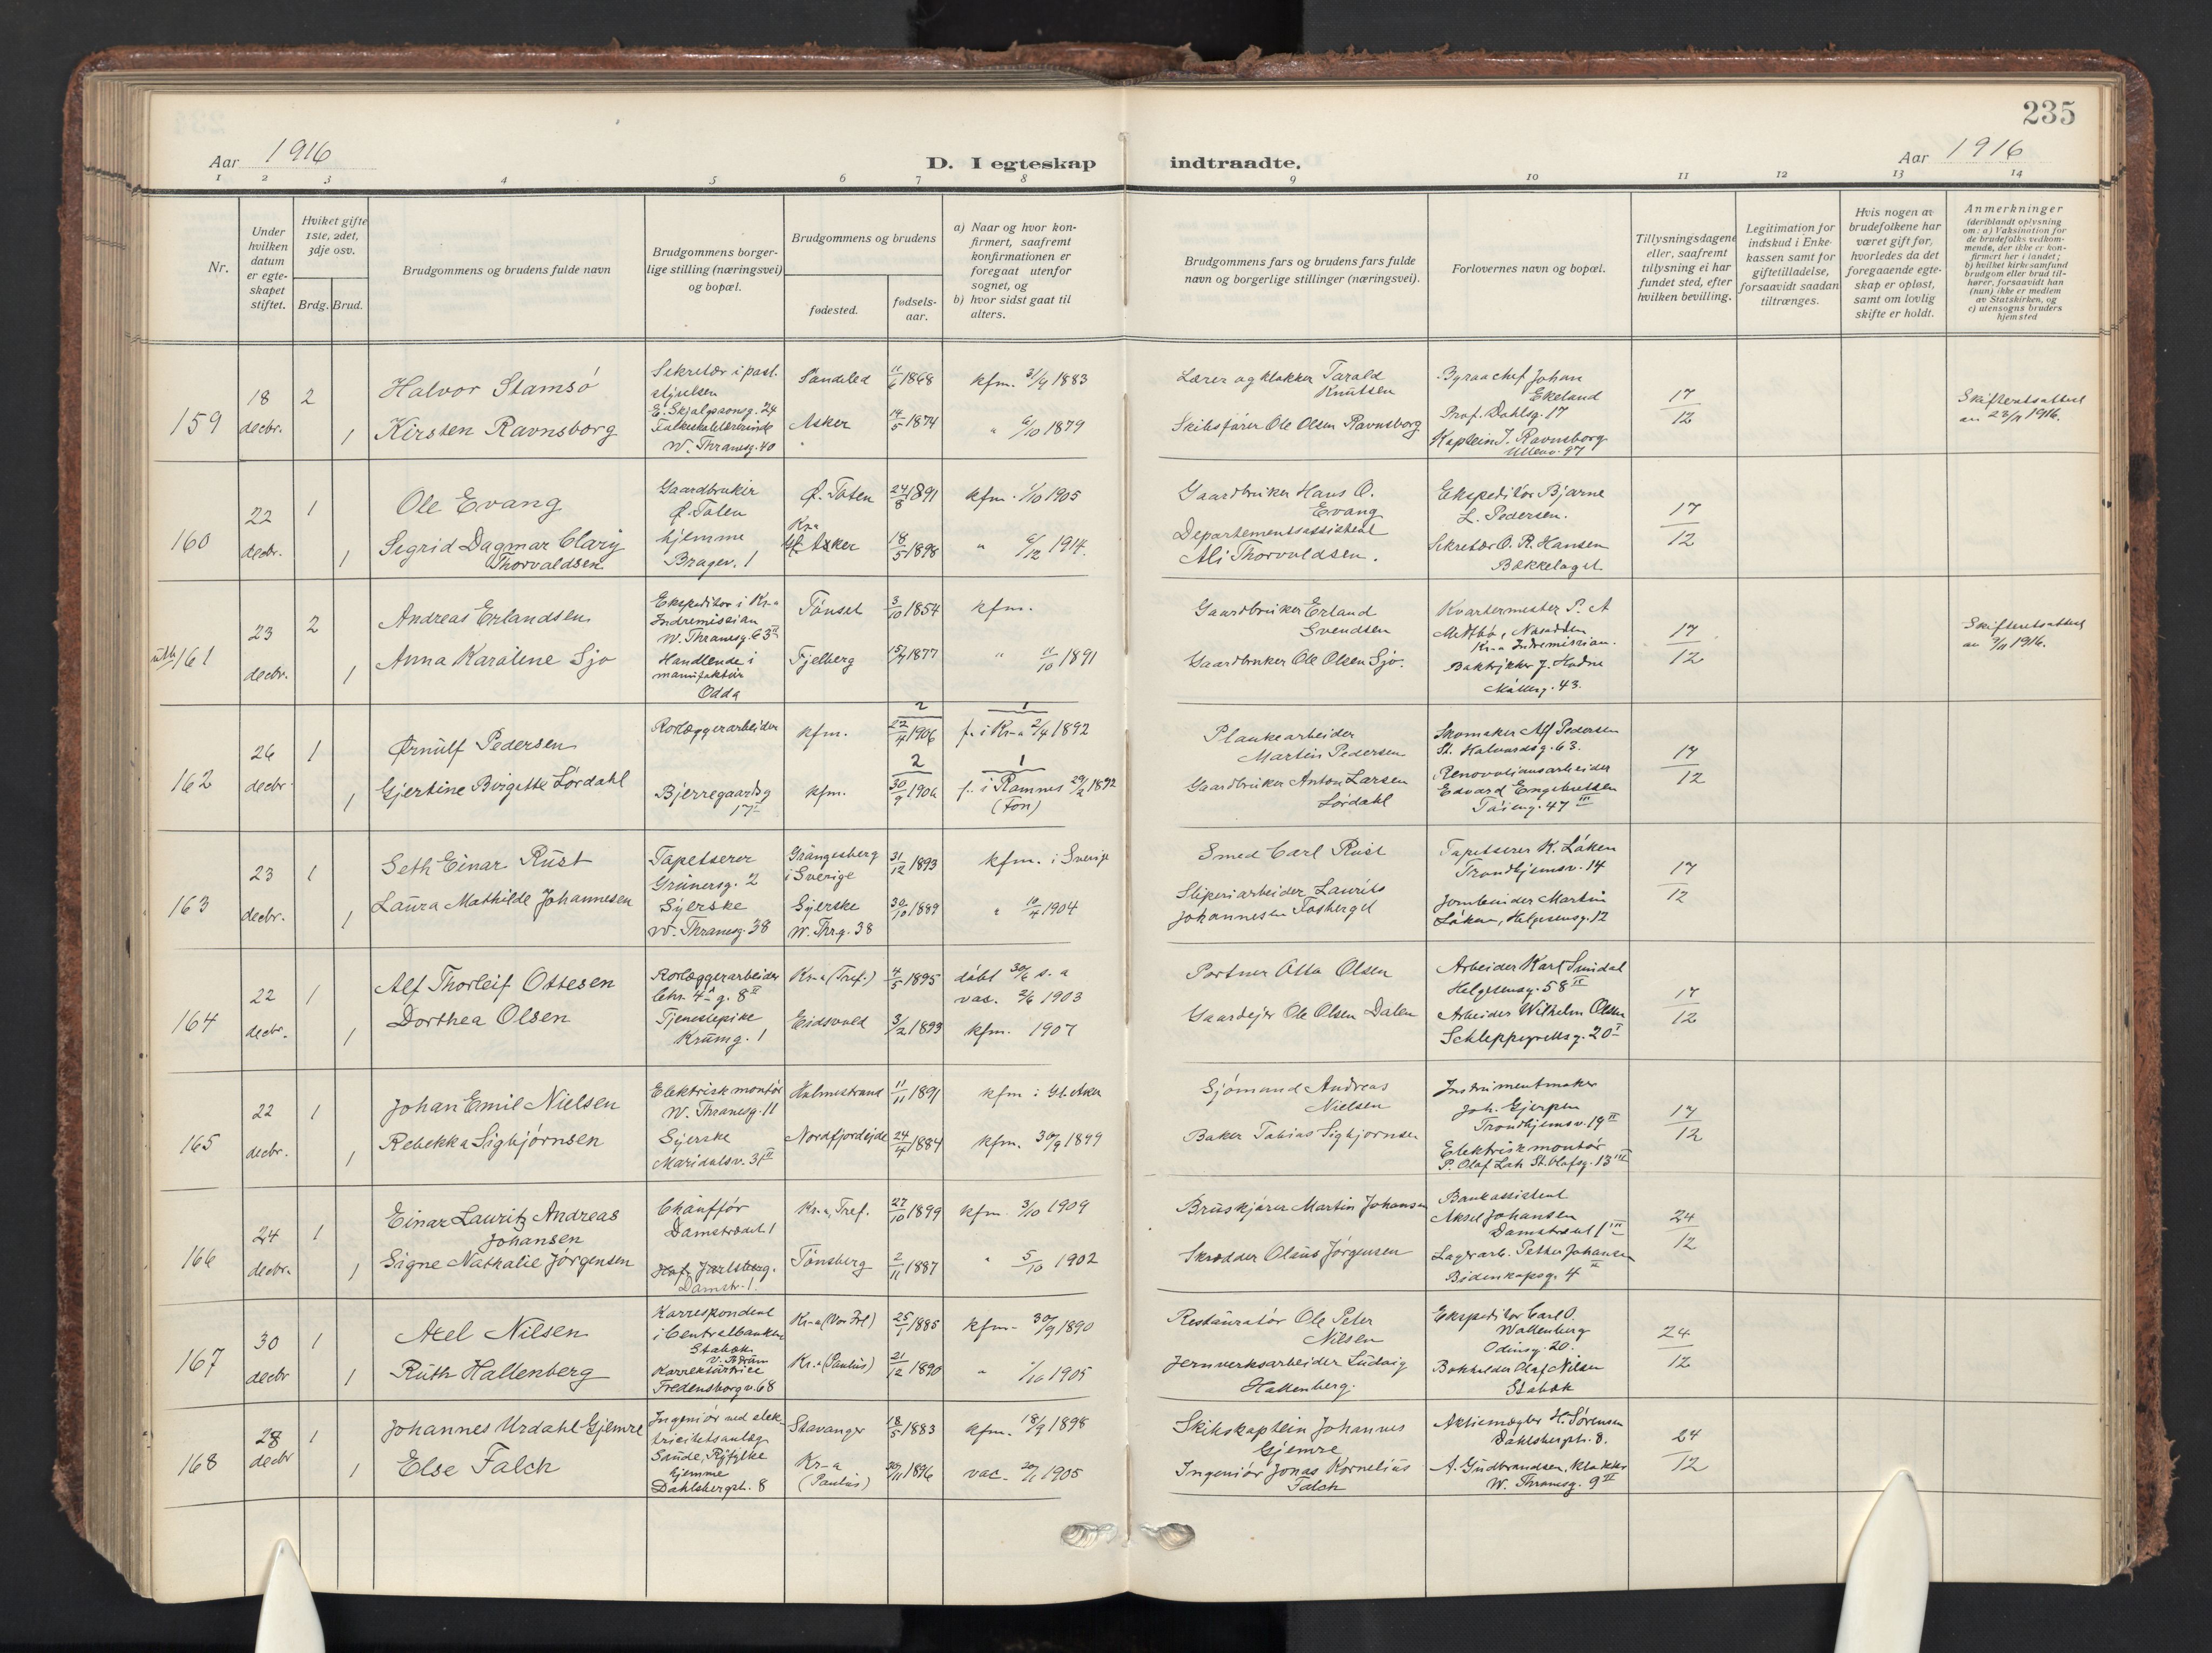 235
Aar 1916
D. I egteskap indtraadte.
Aar 1916
1 2 3 4 5 6 7 8 9 10 11 12 13 14
Nr.
Under hvilken datum er egte-skapet stiftet.
Hviket gifte 1ste, 2det, 3dje osv.
Brdg. Brud.
Brudgommens og brudens fulde navn
Brudgommens borger-
lige stilling (næringsvei)
og bopæl.
Brudgommens og brudens
fødested.
fødsels-
aar.
a) Naar og hvor kon-
firmert, saafremt
konfirmationen er
foregaat utenfor
sognet, og
b) hvor sidst gaat til
alters.
Brudgommens fars og brudens fars fulde
navn og borgerlige stillinger (næringsvei).
Forlovernes navn og bopæl.
Tillysningsdagene
eller, saafremt
tillysning ei har
fundet sted, efter
hvilken bevilling.
Legitimation for
indskud i Enke-
kassen samt for
giftetilladelse,
forsaavidt saadan
tiltrænges.
Hvis nogen av
brudefolkene har
været gift før,
hvorledes da det
foregaaende egte-
skap er opløst,
samt om lovlig
skifte er holdt.
Anmerkninger
(deriblandt oplysning
om: a) Vaksination for
de brudefolks vedkom-
mende, der ikke er kon-
firmert her i landet;
b) hvilket kirkesamfund
brudgom eller brud til-
hører, forsaavidt han
(hun) ikke er medlem
av Statskirken, og
c) utensogns bruders
hjemsted
159
18 decbr.
2
1
Halvor Stamsø
Kirsten Ravnsborg
Sekretær i post.
styrelsen
E. Skjalgsonsg. 24
W. Thranesg. 40
Søndeled 11/6 1868 kfm. 3/9 1883
Asker 14/5 1874 " 6/10 1879
Lærer og klokker Tarald
Knutsen
Skibsfører Ole Olsen Ravnsborg
Byraachef Johan
Ekeland
Prof. Dahlsg. 17
Kaptein J. Ravnsborg
Ullevv. 97
17/12
Skifteretsattest
av 23/11 1916.
160
22 decbr.
1
1
Ole Evang
Sigrid Dagmar Clary
Thorvaldsen
Gaardbruker
Ø. Toten
hjemme
Bragev. 1
Ø. Toten 24/8 1891 kfm. 1/10 1905
Kr-a
Asker 18/5 1898 " 6/12 1914.
Gaardbruker Hans O.
Evang
Departementsassistent
Ali Thorvaldsen.
Ekspeditør Bjarne
L. Pedersen.
Sekretær O. R. Hansen
Bækkelaget
17/12
161
23 decbr.
2
1
Andreas Erlandsen
Anna Karoline Sjo
Ekspeditør i Kr-a
Indremission
W. Thranesg. 63 II
Handlende i
manufaktur
Odda
Tønset 3/10 1854 kfm.
Fjelberg 15/7 1877 " 11/10 1891
Gaardbruker Erland
Svendsen
Gaardbruker Ole Olsen Sjo.
Kvartermester P. A
Kr-a Indremission.
Møllerg. 43.
17/12
Skifteretsattest
162
26 decbr.
1
1
Ørnulf Pedersen
Gjertine Birgitte Lørdahl
Rørlæggerarbeider
Bjerregaardsg
17 I
kfm. 2 22/4 1906 1 f. i Kr-a 2/4 1892
kfm. 2 30/9 1906 1 f. i Ramnes 29/2 1892
(Fon)
Plankearbeider
Martin Pedersen
Gaardbruker Anton Larsen
Lørdahl
Skomaker Alf Pedersen
St. Halvardsg. 63.
Renovationsarbeider
Edvard Engebretsen
Tøieng. 47 III
17/12
163
23 decbr.
1
1
Seth Einar Rust
Laura Mathilde Johannesen
Tapetserer
Grünersg. 2
Syerske
W. Thranesg. 38
Grängesberg
i Sverige 31/12 1893 kfm. i Sverige
Syerske
W. Thrg. 38 30/10 1889 " 10/4 1904
Smed Carl Rust
Sliperiarbeider Laurits
Johannesen Fosberget
Tapetserer K. Løken
Trondhjemsv. 14
Martin
Løken, Helgesensg. 12
17/12
164
22 decbr.
1
1
Alf Thorleif Ottesen
Dorthea Olsen
Rørlæggerarbeider
Chr. 4 s g. 8 II
Tjenestepike
Krumg. 1
Kr-a (Tref.) 4/5 1895 døbt 30/6 s. a
vac. 2/6 1903
Eidsvold 3/2 1893 kfm. 1907
Portner Otto Olsen
Gaardejer Ole Olsen Dalen
Arbeider Karl Smidal
Helgesensg. 58 II
Arbeider Wilhelm Olsen
Schleppegrellsg. 20 I
17/12
165
22 decbr.
1
1
Johan Emil Nielsen
Rebekka Sigbjørnsen
Elektrisk montør
W. Thranesg. 11
Syerske
Maridalsv. 31 II
Holmestrand 11/11 1891 kfm i Gl. Aker
Nordfjordeide 24/4 1884 kfm. 30/9 1899
Sjømand Andreas
Nielsen
Baker Tobias Sigbjørnsen
Instrumentmaker
Joh. Gjerpen
Trondhjemsv. 19 II
Elektrisk montør
P. Olaf Lah St. Olafsg. 13 III
17/12
166
24 decbr.
1
1
Einar Lauritz Andreas
Johansen
Signe Nathalie Jørgensen
Chauffør
Damstrædet 1
Jarlsberg.
Damstr. 1.
Kr-a, Tref. 27/10 1899 kfm. 3/10 1909
Tønsberg 2/11 1887 " 5/10 1902
Bruskjører Martin Johansen
Skrædder Olaus Jørgensen
Bankassistent
Aksel Johansen
Damstrædet 1 III
Lagerarb. Petter Johansen
Bidenkapsg. 4 II
24/12
167
30 decbr
1
1
Axel Nilsen
Ruth Hallenberg
Korrespondent
i Centralbanken
Stabæk
Korrekturtrice
Fredensborgv. 68
Kr-a (Vor Frl) 25/1 1885 kfm. 30/9 1890
Kr-a (Paulus) 21/12 1890 " 1/10 1905
Restauratør Ole Peter
Nilsen
Jernverksarbeider Ludvig
Hallenberg.
Ekspeditør Carl O.
Wallenberg
Odinsg. 20.
Bokholder Olaf Nilsen
Stabæk
24/12
168
28 decbr
1
1
Johannes Urdahl Gjemre
Else Falch
Ingeniør ved elek-
tricitetsanlæg
Saude, Ryfylke
hjemme
Dahlsbergst. 8
Stavanger 18/5 1883 kfm. 18/9 1898
Kr-a
(Paulus) 30/11 1896 vac. 20/11 1905
Skibskaptein Johannes
Gjemre
Ingeniør Jonas Kornelius
Falch
Aktiemægler H. Sørensen
Dahlsbergst. 8.
A. Gudbrandsen, klokker
W. Thranesg. 9 II
24/12